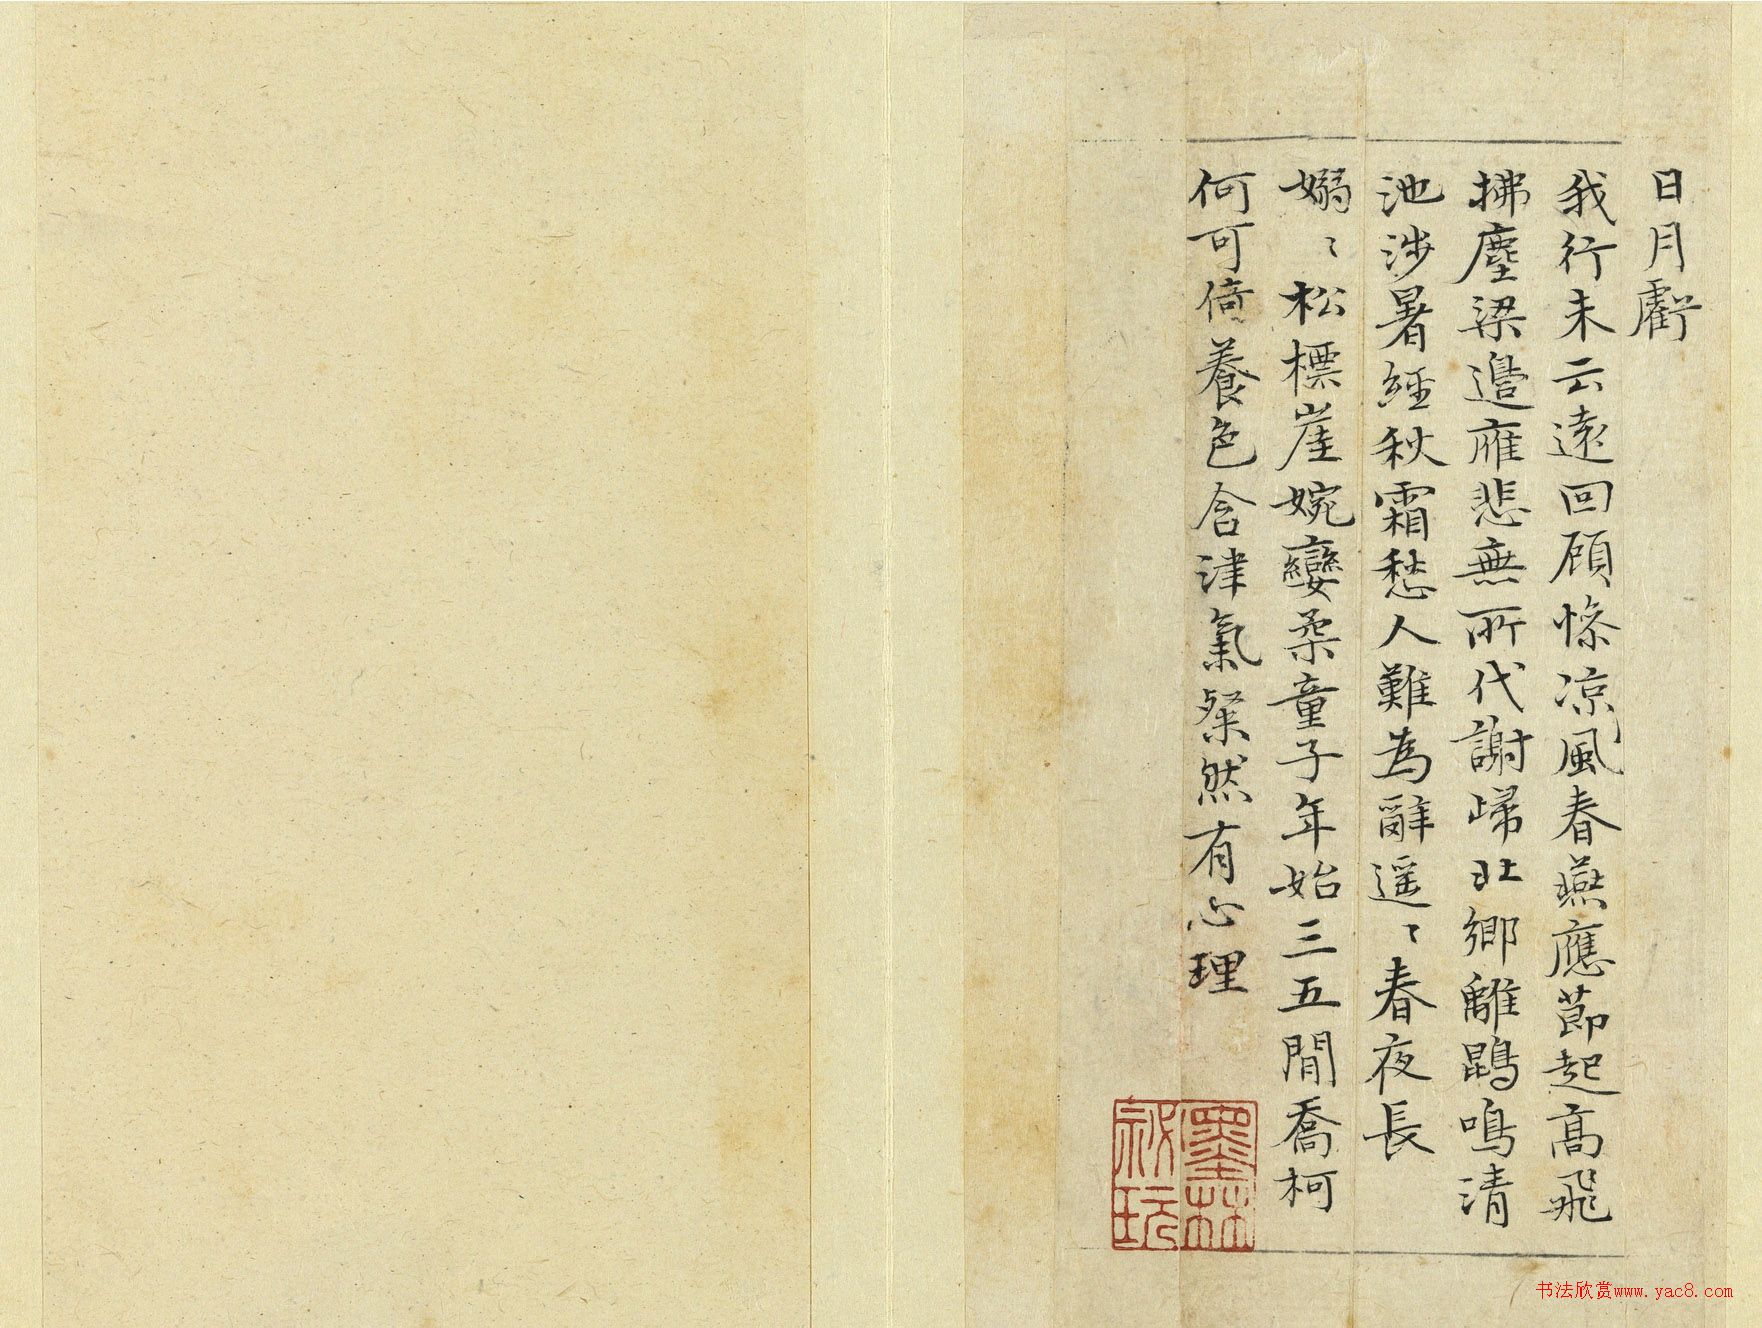 日月虧
我行未云遠回顧慘凉風春燕應節起高飛
拂塵梁邉雁悲無所代謝歸北鄉離鵾鳴清
池涉暑經秋霜愁人難為辭遥〻春夜長
嫋〻松標崖婉孌柔童子年始三五間喬柯
何可倚養色含津氣粲然有心理
墨林
秘玩
书法欣赏www.yac8.com